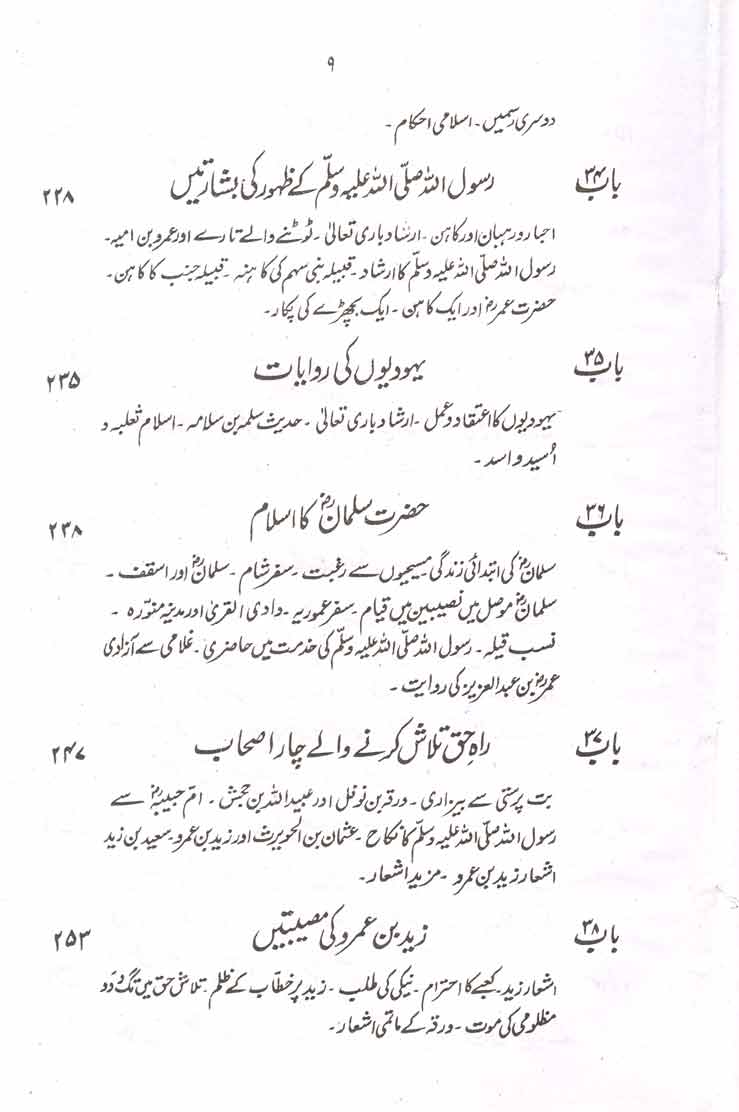 ۹
دوسری رسمیں۔ اسلامی احکام۔
باب ۳۴ رسول اللہ صلّی اللہ علیہ وسلّم کے ظہور کی بشارتیں ۲۲۸
احبار و رہبان اور کاہن۔ ارشاد باری تعالیٰ۔ ٹوٹنے والے تارے اور عمرو بن امیہ۔
رسول اللہ صلّی اللہ علیہ وسلّم کا ارشاد۔ قبیلہ بنی سہم کی کاہنہ۔ قبیلہ جنب کا کاہن۔
حضرت عمرؓ اور ایک کاہن۔ ایک بچھڑے کی پکار۔
باب ۳۵ یہودیوں کی روایات ۲۳۵
یہودیوں کا اعتقاد و عمل۔ ارشاد باری تعالیٰ۔ حدیث سلمہ بن سلامہ۔ اسلام ثعلبہ و
اُسید و اسد۔
باب ۳۶ حضرت سلمانؓ کا اسلام ۲۳۸
سلمانؓ کی ابتدائی زندگی مسیحیوں سے رغبت۔ سفر شام۔ سلمانؓ اور اسقف۔
سلمانؓ موصل میں نصیبین میں قیام۔ سفر عموریہ۔ وادی القریٰ اور مدینہ منوّرہ۔
نسب قیلہ۔ رسول اللہ صلّی اللہ علیہ وسلّم کی خدمت میں حاضری۔ غلامی سے آزادی
عمرؓ بن عبدالعزیز کی روایت۔
باب ۳۷ راہِ حق تلاش کرنے والے چار اصحاب ۲۴۷
بت پرستی سے بیزاری۔ ورقہ بن نوفل اور عبیداللہ بن جحش۔ امّ حبیبہؓ سے
رسول اللہ صلّی اللہ علیہ وسلّم کا نکاح۔ عثمان بن الحویرث اور زید بن عمرو۔ سعید بن زید
اشعار زید بن عمرو۔ مزید اشعار۔
باب ۳۸ زید بن عمرو کی مصیبتیں ۲۵۳
اشعار زید۔ کعبے کا احترام۔ نیکی کی طلب۔ زید پر خطّاب کے ظلم۔ تلاش حق میں تگ و دَو
مظلومی کی موت۔ ورقہ کے ماتمی اشعار۔